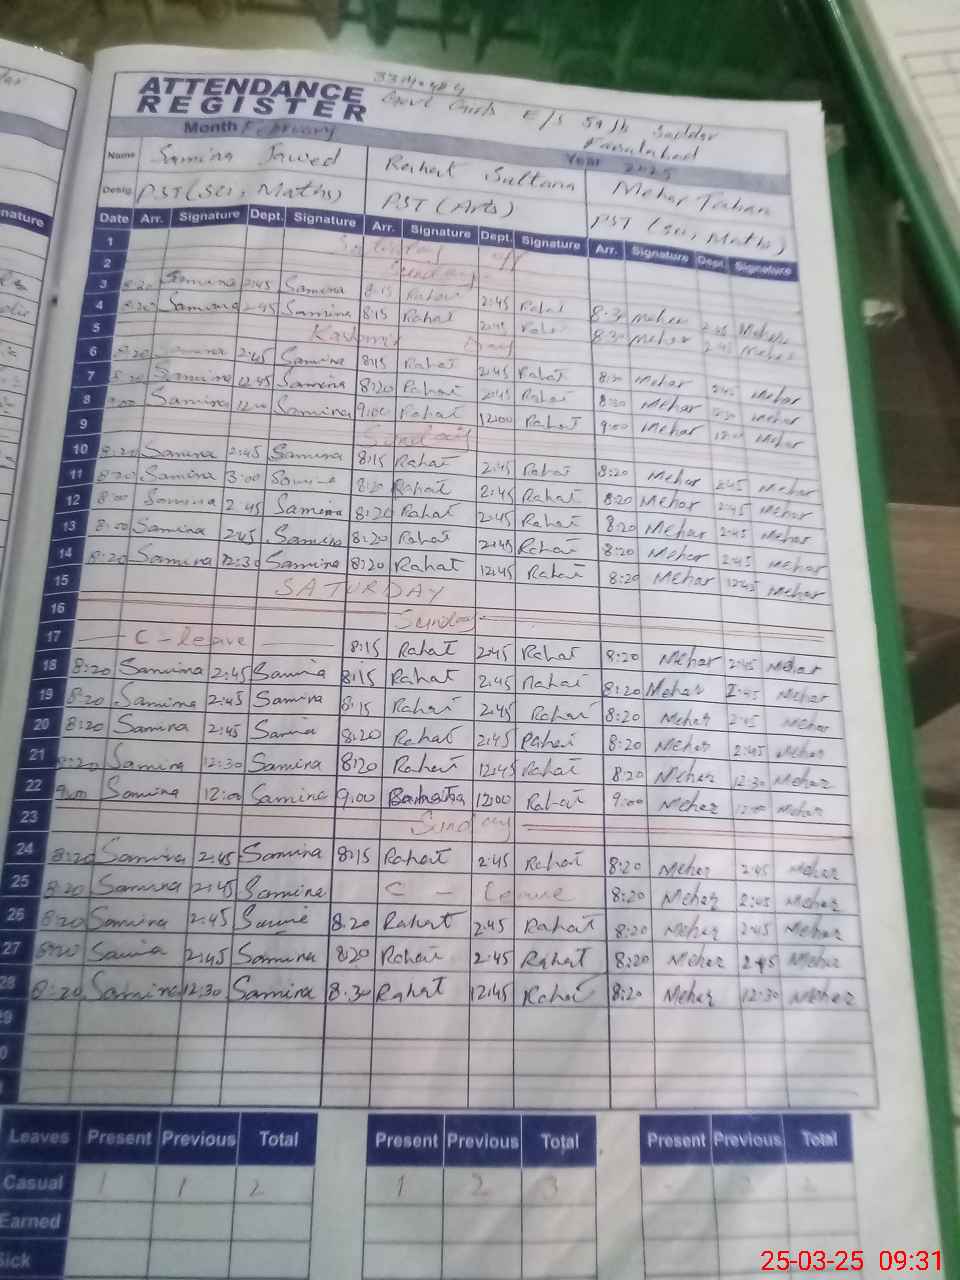 ATTENDANCE
REGISTER
Govt Girls E/S 59 Jb Saddar
Faisalabad
Month February Year 2025
Name Samina Jawed Rahat Sultana Mehar
Desig. PST (Sci, Maths) PST (Arts) PST (Sci, Maths)
Date Arr. Signature Dept. Signature Arr. Signature Dept. Signature Arr. Signature Dept. Signature
1 Saturday off
2 Sunday
3 8:20 Samina 2:45 Samina 8:15 Rahat 2:45 Rahat 8:30 Mehar 2:45 Mehar
4 8:20 Samina 2:45 Samina 8:15 Rahat 2:45 Rahat 8:30 Mehar 2:45 Mehar
5 Kashmir Day
6 8:20 Samina 2:45 Samina 8:15 Rahat 2:45 Rahat 8:20 Mehar 2:45 Mehar
7 8:20 Samina 12:45 Samina 8:20 Rahat Rahat 8:20 Mehar Mehar
8 9:00 Samina 12:00 Samina 9:00 Rahat 12:00 Rahat 9:00 Mehar 12:00 Mehar
9 Sunday
10 8:20 Samina 2:45 Samina 8:15 Rahat 2:45 Rahat 8:20 Mehar 2:45 Mehar
11 8:20 Samina 3:00 Samina 8:20 Rahat 2:45 Rahat 8:20 Mehar 2:45 Mehar
12 8:00 Samina 2:45 Samina 8:20 Rahat 2:45 Rahat 8:20 Mehar 2:45 Mehar
13 8:00 Samina 2:45 Samina 8:20 Rahat 2:45 Rahat 8:20 Mehar 2:45 Mehar
14 8:20 Samina 12:30 Samina 8:20 Rahat 12:45 Rahat 8:20 Mehar 12:45 Mehar
15 SATURDAY
16 Sunday
17 C-leave 8:15 Rahat 2:45 Rahat 8:20 Mehar 2:45 Mehar
18 8:20 Samina 2:45 Samina 8:15 Rahat 2:45 Rahat 8:20 Mehar 2:45 Mehar
19 8:20 Samina 2:45 Samina 8:15 Rahat 2:45 Rahat 8:20 Mehar 2:45 Mehar
20 8:20 Samina 2:45 Samina 8:20 Rahat 2:45 Rahat 8:20 Mehar 2:45 Mehar
21 8:20 Samina 12:30 Samina 8:20 Rahat 12:45 Rahat 8:20 Mehar 12:30 Mehar
22 9:00 Samina 12:00 Samina 9:00 12:00 Rahat 9:00 Mehar 12:00 Mehar
23 Sunday
24 8:20 Samina 2:45 Samina 8:15 Rahat 2:45 Rahat 8:20 Mehar 2:45 Mehar
25 8:20 Samina 2:45 Samina C - Leave 8:20 Mehar 2:45 Mehar
26 8:20 Samina 2:45 Samina 8.20 Rahat 2:45 Rahat 8:20 Mehar 2:45 Mehar
27 8:20 Samina 2:45 Samina 8:20 Rahat 2:45 Rahat 8:20 Mehar 2:45 Mehar
28 8:20 Samina 12:30 Samina 8.30 Rahat 12:45 Rahat 8:20 Mehar 12:30 Mehar
Leaves Present Previous Total Present Previous Total Present Previous Total
Casual 1 1 2 1 2 3 - 2 2
Earned
Sick
25-03-25 09:31